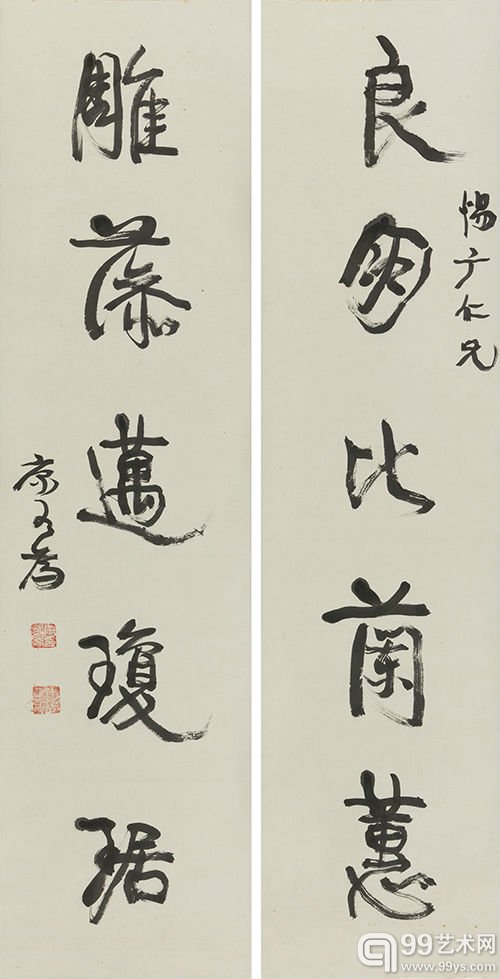 惕广仁兄
良朋比蘭蕙
雕藻邁瓊琚
康有為
99艺术网
www.99ys.com